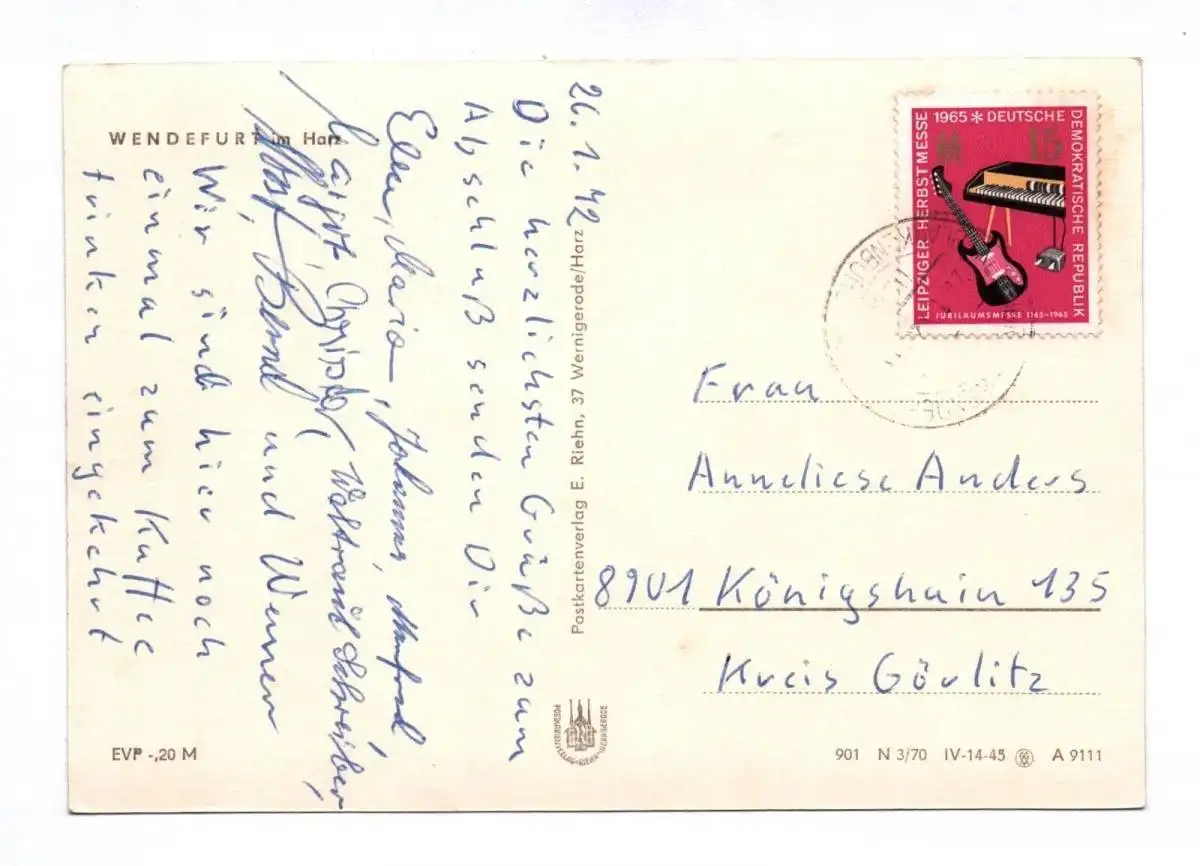 WENDEFURT im Harz
26.1.72
Die herzlichsten Grüße zum
Abschluß senden Dir
Ellen, Maria, Johannes, Manfred
Margit, Christel, Waltraud Schreiber,
Bernd und Werner
Wir sind hier noch
einmal zum Kaffee
trinken eingekehrt
EVP -,20 M
Postkartenverlag E. Riehn, 37 Wernigerode/Harz
LEIPZIGER HERBSTMESSE 1965 * DEUTSCHE DEMOKRATISCHE REPUBLIK
15
JUBILÄUMSMESSE 1165-1965
Frau
Anneliese Anders
8901 Königshain 135
Kreis Görlitz
901 N 3/70 IV-14-45 A 9111